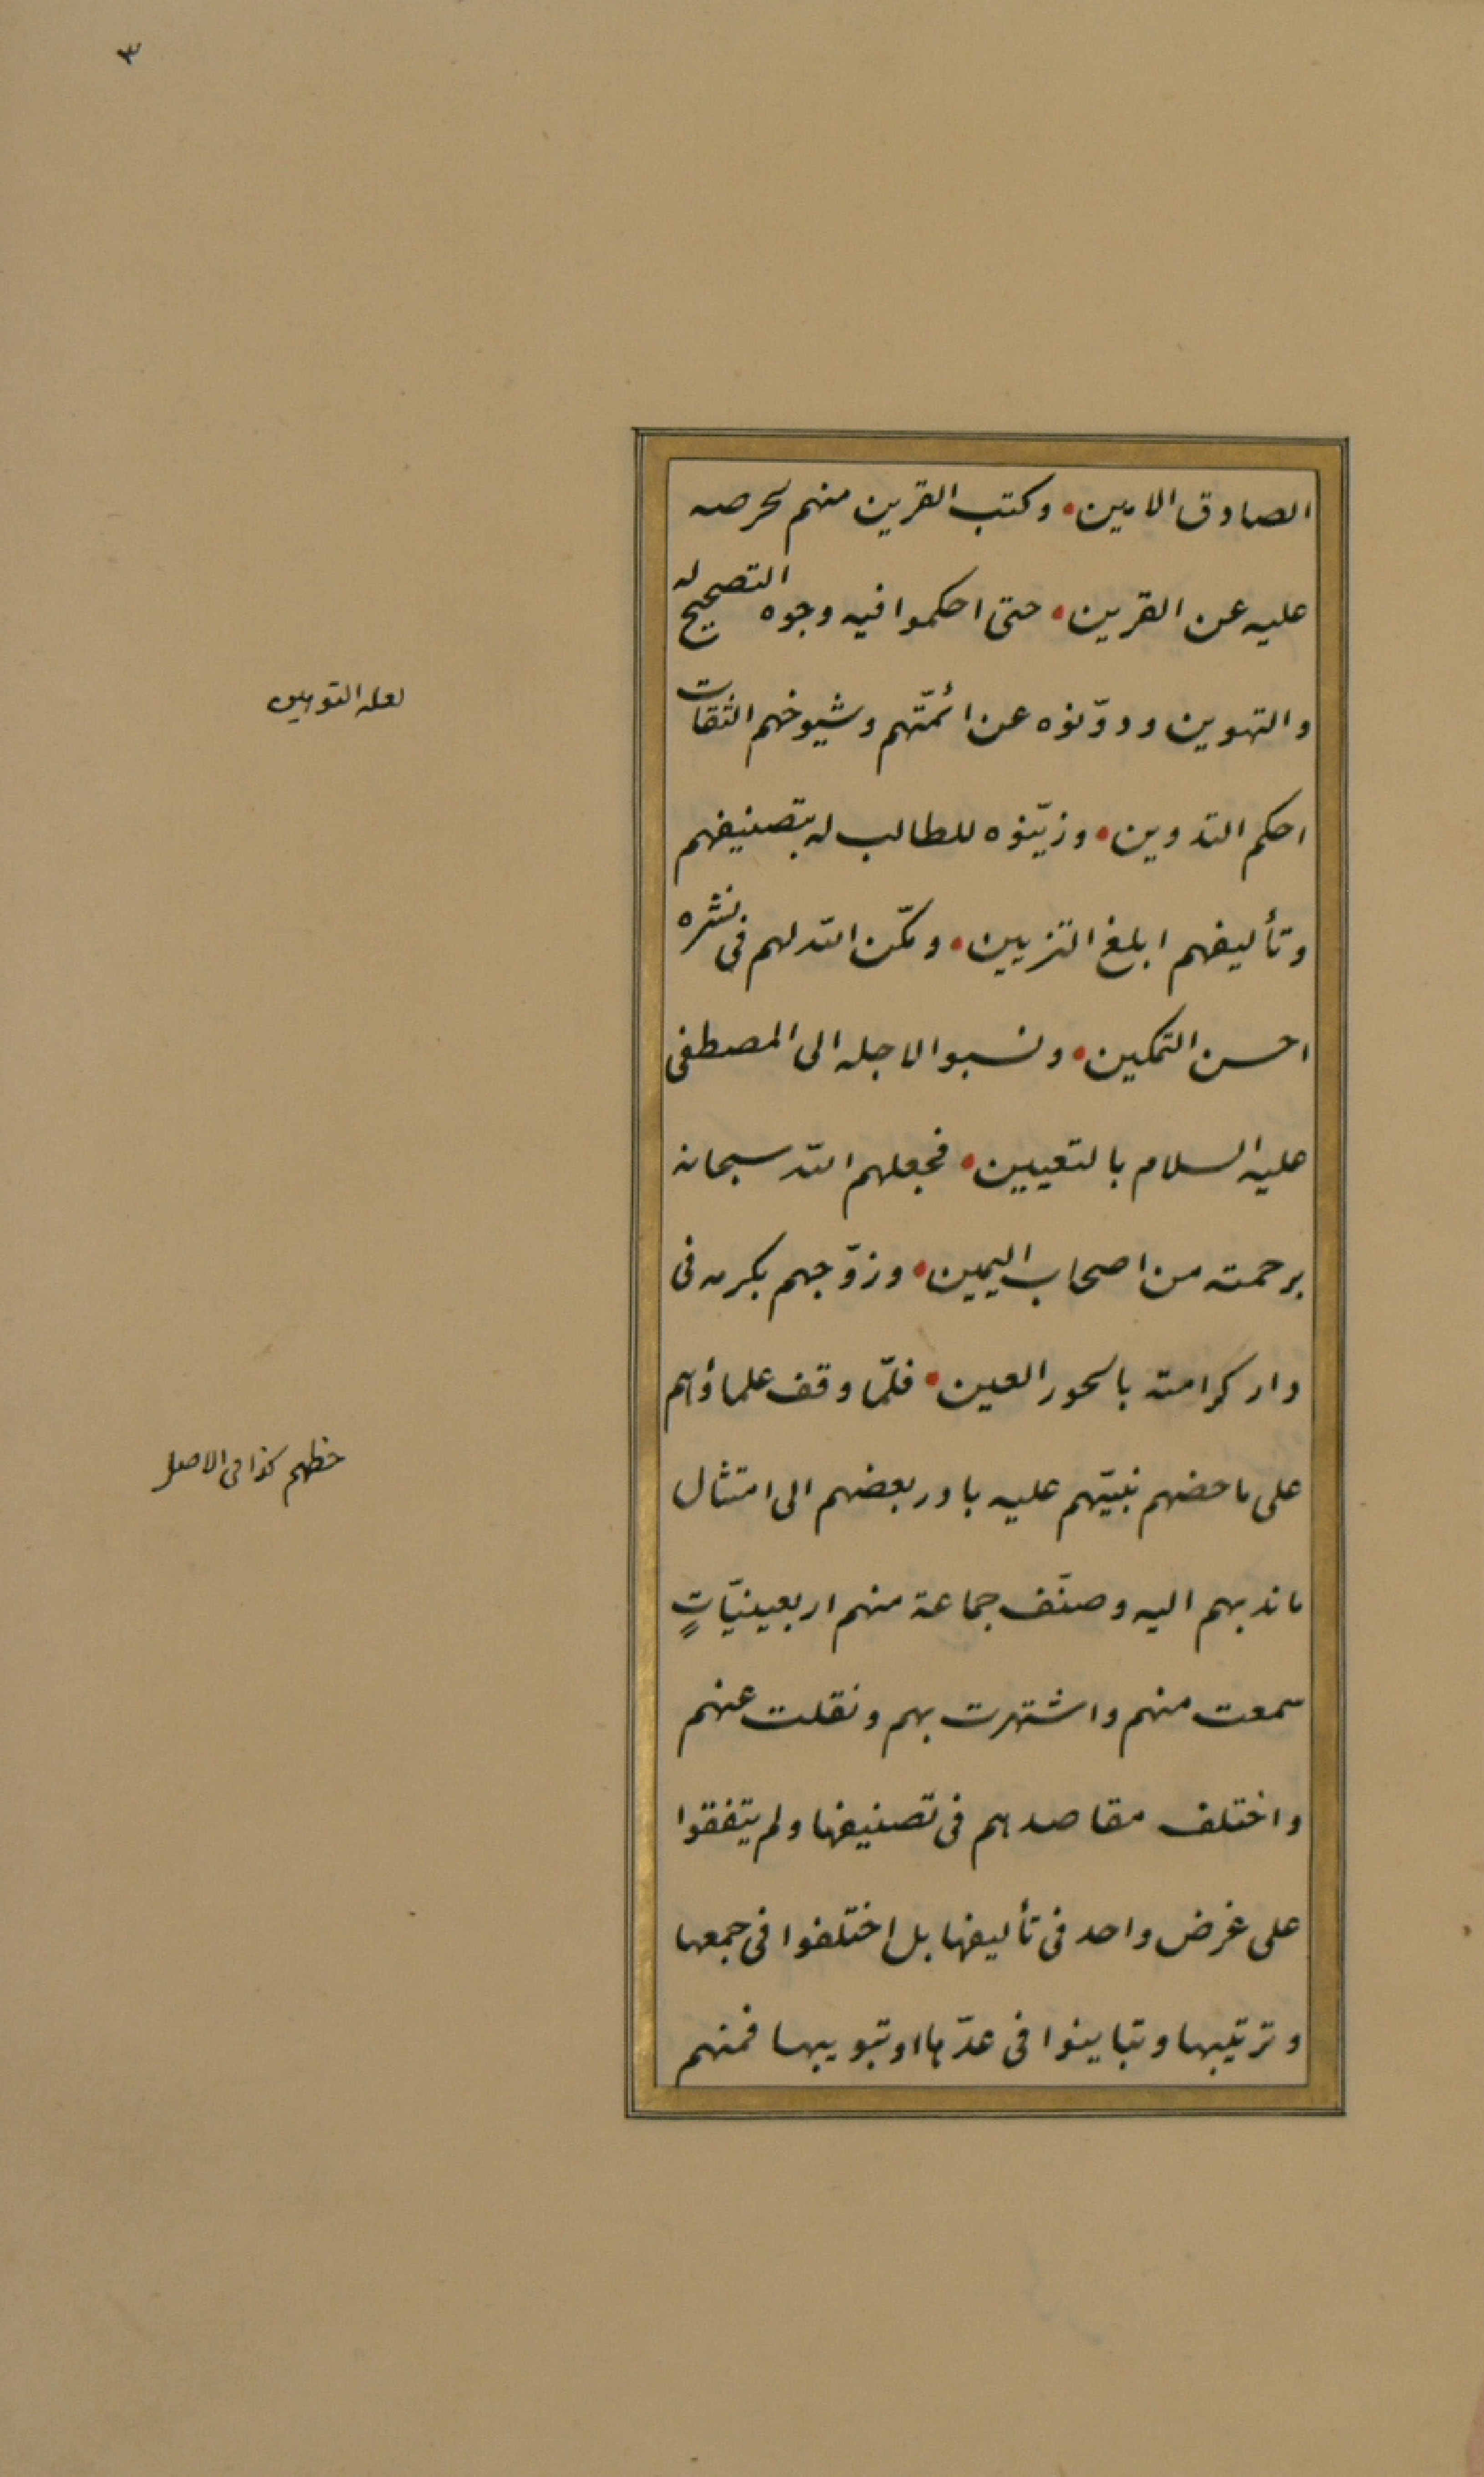 ٣
الصادق الامين • وكتب القرين منهم لحرصه
عليه عن القرين • حتى احكموا فيه وجوه التصحيح له
والتهوين ودوّنوه عن ائمّتهم وشيوخهم الثقات
لعله التوهين
احكم التدوين • وزيّنوه للطالب له بتصنيفهم
وتأليفهم ابلغ التزيين • ومكّن الله لهم فى نشره
احسن التمكين • ونسبوا لاجله الى المصطفى
عليه السلام بالتعيين • فجعلهم الله سبحانه
برحمته من اصحاب اليمين • وزوّجهم بكرمه فى
دار كرامته بالحور العين • فلمّا وقف علماؤهم
على ما حضهم نبيّهم عليه بادر بعضهم الى امتثال
حظهم كذا فى الاصل
ما ندبهم اليه وصنّف جماعة منهم اربعينيّاتٍ
سمعت منهم واشتهرت بهم ونقلت عنهم
واختلف مقاصدهم فى تصنيفها ولم يتفقوا
على غرض واحد فى تأليفها بل اختلفوا فى جمعها
وترتيبها وتباينوا فى عدّها وتبويبها فمنهم